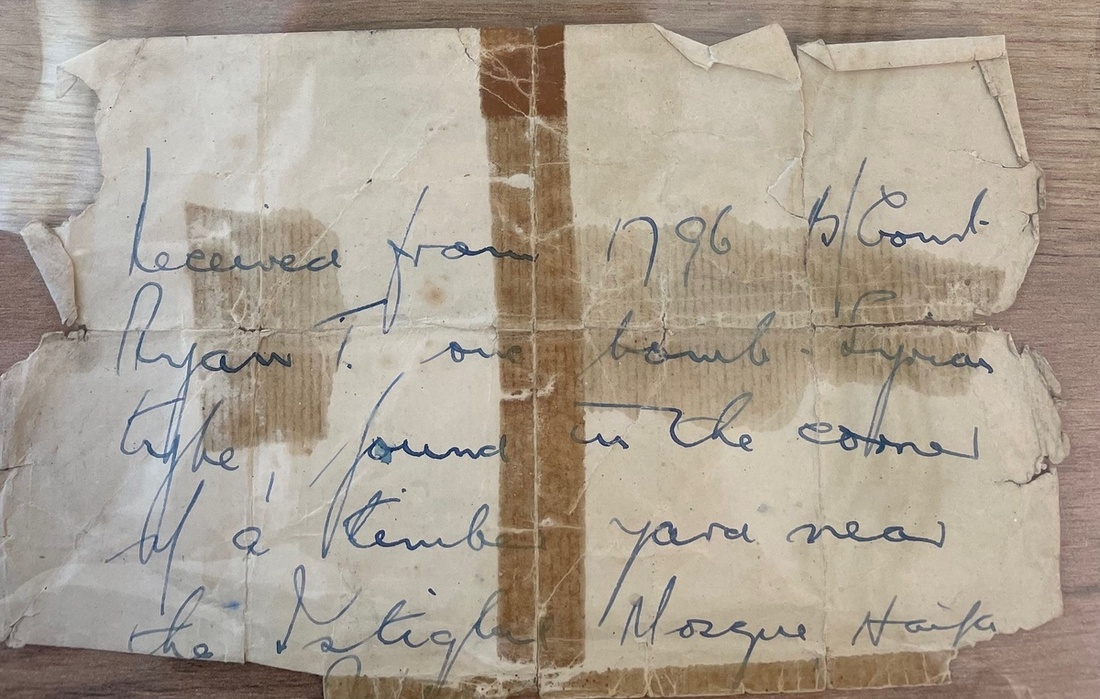 Received from 1796 B/Const
Ryan T. one bomb - Syrian
type, found in the corner
of a timber yard near
the Istiqlal Mosque Haifa